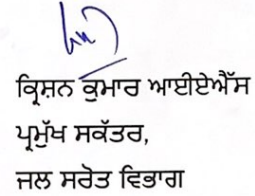 ਕ੍ਰਿਸ਼ਨ ਕੁਮਾਰ ਆਈਏਐੱਸ
ਪ੍ਰਮੁੱਖ ਸਕੱਤਰ,
ਜਲ ਸਰੋਤ ਵਿਭਾਗ